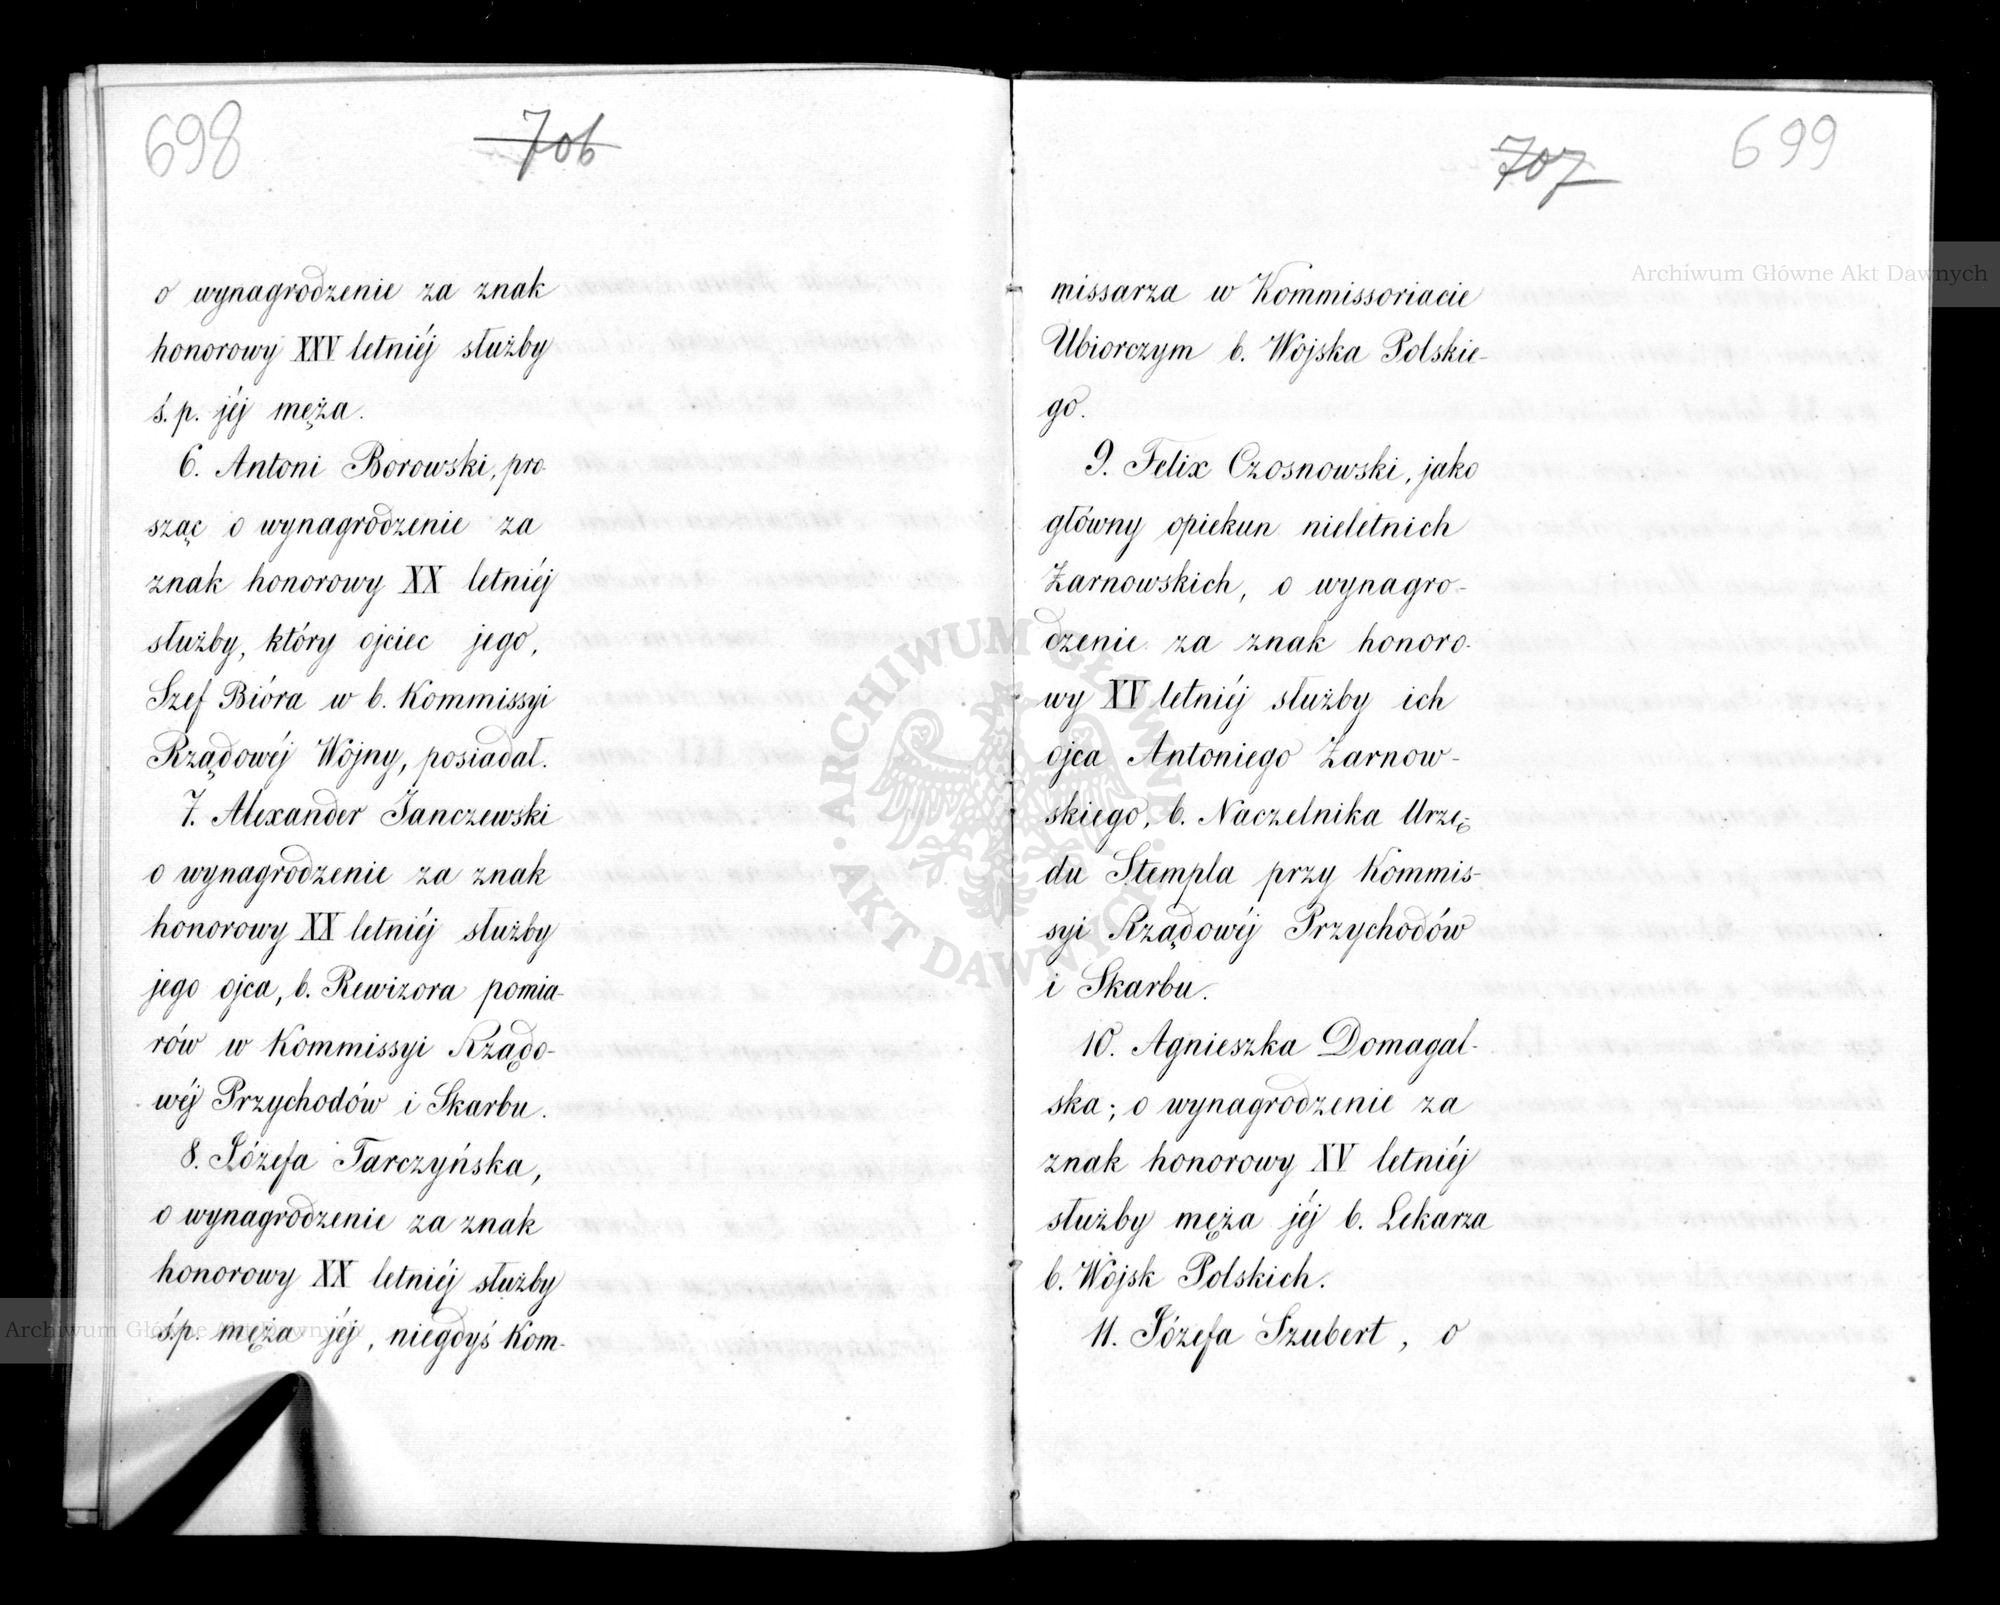 698
706
o wynagrodzenie za znak
honorowy XXV letniéj służby
ś. p. jéj męża.
6. Antoni Borowski, pro
sząc o wynagrodzenie za
znak honorowy XX letniéj
służby, który ojciec jego,
Szef Bióra w b. Kommissyi
Rządowéj Wojny, posiadał.
7. Alexander Janczewski
o wynagrodzenie za znak
honorowy XX letniéj służby
jego ojca, b. Rewizora pomia-
rów w Kommissyi Rządo-
wéj Przychodów i Skarbu.
8. Józefa Tarczyńska,
o wynagrodzenie za znak
honorowy XX letniéj służby
ś.p. męża jéj, niegdyś Kom-
707
699
missarza w Kommissoriacie
Ubiorczym b. Wojska Polskie-
go.
9. Felix Czosnowski, jako
główny opiekun nieletnich
Żarnowskich, o wynagro-
dzenie za znak honoro-
wy XV letniéj służby ich
ojca Antoniego Żarnow-
skiego, b. Naczelnika Urzę-
du Stempla przy Kommis-
syi Rządowéj Przychodów
i Skarbu.
10. Agnieszka Domagal-
ska; o wynagrodzenie za
znak honorowy XV letniéj
służby męża jéj b. Lekarza
b. Wojsk Polskich.
11. Józefa Szubert, o
Archiwum Główne Akt Dawnych
Archiwum Główne Akt Dawnych
ARCHIWUM GŁÓWNE AKT DAWNYCH